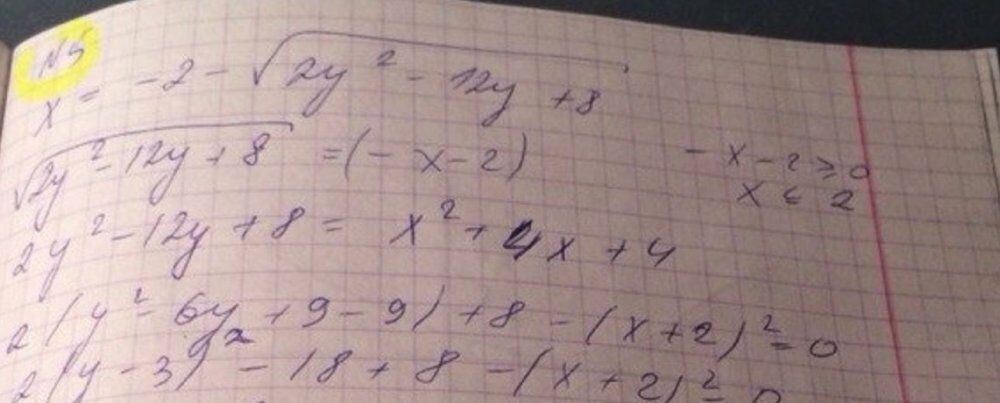 N5
x = -2 - √(2y² - 12y + 8)
√(2y² - 12y + 8) = (-x-2)
-x-2 ≥ 0
x < 2
2y² - 12y + 8 = x² + 4x + 4
2(y² - 6y + 9 - 9) + 8 - (x+2)² = 0
2(y - 3)² - 18 + 8 - (x+2)² = 0